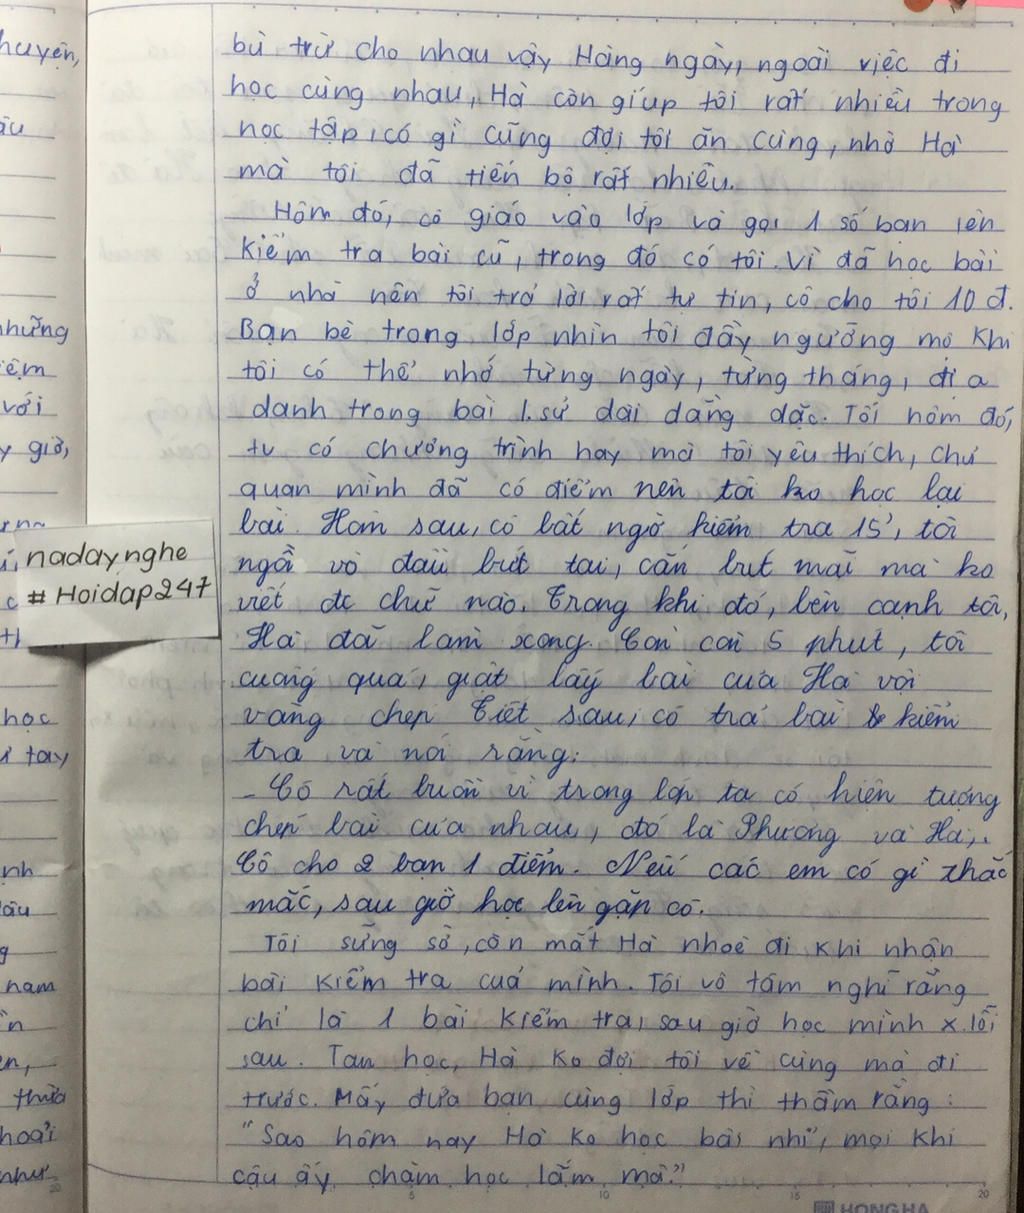 bù trừ cho nhau vậy Hàng ngày, ngoài việc đi
học cùng nhau, Hà còn giúp tôi rất nhiều trong
học tập, có gì cũng đợi tôi ăn cùng, nhờ Hà
mà tôi đã tiến bộ rất nhiều.
Hôm đó, cô giáo vào lớp và gọi 1 số bạn lên
kiểm tra bài cũ, trong đó có tôi. Vì đã học bài
ở nhà nên tôi trả lời rất tự tin, cô cho tôi 10 đ.
Bạn bè trong lớp nhìn tôi đầy ngưỡng mộ khi
tôi có thể nhớ từng ngày, từng tháng, địa
danh trong bài l.sử dài dằng dặc. Tối hôm đó,
tv có chương trình hay mà tôi yêu thích, chủ
quan mình đã có điểm nên tôi ko học lại
bài. Hôm sau, cô bất ngờ kiểm tra 15', tôi
ngồi vò đầu bứt tai, cắn bút mãi mà ko
viết đc chữ nào. Trong khi đó, bên cạnh tôi,
Hà đã làm xong. Còn còn 5 phút, tôi
cuống quá, giật lấy bài của Hà vội
vàng chép Tiết sau, cô trả bài kiểm
tra và nói rằng:
- Cô rất buồn vì trong lớp ta có hiện tượng
chép bài của nhau, đó là Phương và Hà,.
Cô cho 2 bạn 1 điểm. Nếu các em có gì thắc
mắc, sau giờ học lên gặp cô.
Tôi sững sờ, còn mắt Hà nhoè đi khi nhận
bài kiểm tra của mình. Tôi vô tâm nghĩ rằng
chỉ là 1 bài kiểm tra, sau giờ học mình x.lỗi
sau. Tan học, Hà ko đợi tôi về cùng mà đi
trước. Mấy đứa bạn cùng lớp thì thầm rằng:
"Sao hôm nay Hà ko học bài nhỉ", mọi khi
cậu ấy chăm học lắm mà."
nadaynghe
# Hoidap247
huyện,
hững
với
y giờ,
học
tay
nam
thừa
hoải
như
5 10 15 20
HONG HA